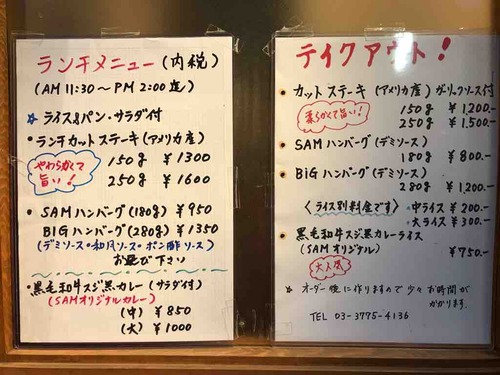 ランチメニュー(内税)
(AM 11:30〜PM 2:00迄)
☆ ライス&パン・サラダ付
・ランチカットステーキ(アメリカ産)
やわらかくて旨い!
150g ¥1300
250g ¥1600
・SAMハンバーグ(180g) ¥950
BIGハンバーグ(280g) ¥1350
(デミソース・和風ソース・ポン酢ソース)
お選び下さい
・黒毛和牛スジ黒カレー(サラダ付)
(SAMオリジナルカレー)
(中) ¥850
(大) ¥1000
テイクアウト!
・カットステーキ(アメリカ産)ガーリックソース付
柔らかくて旨い!
150g ¥1,200-
250g ¥1,500-
・SAMハンバーグ(デミソース)
180g ¥800-
・BIGハンバーグ(デミソース)
280g ¥1,200-
〈ライス別料金です〉・中ライス ¥200-
・大ライス ¥300-
・黒毛和牛スジ黒カレーライス
(SAMオリジナル) ¥750-
大人気
☆ オーダー後に作りますので少々お時間が
かかります.
TEL 03-3775-4136